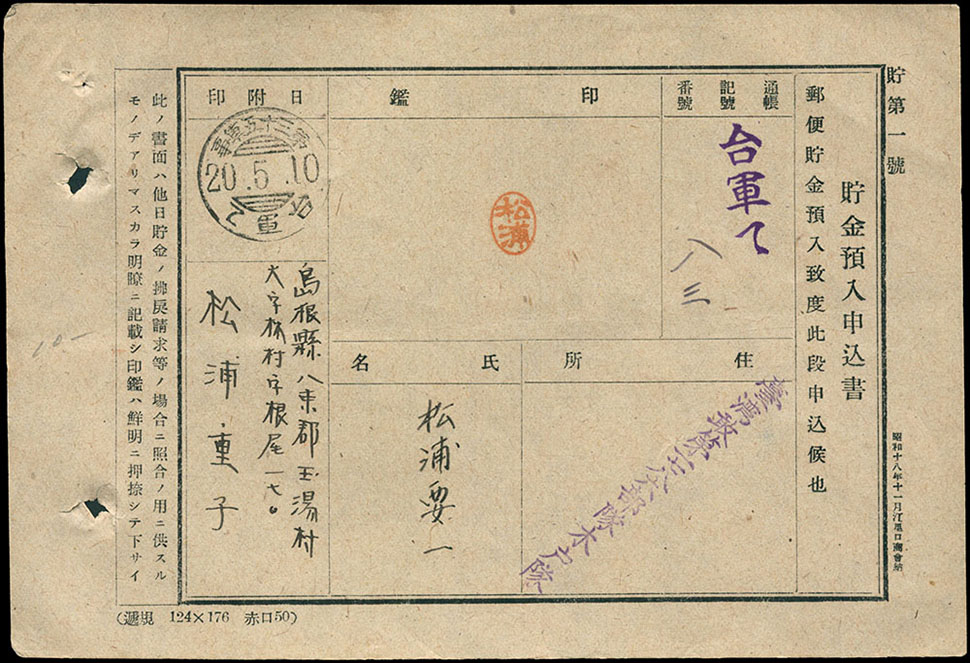 貯第一號
貯金預入申込書
昭和十八年十一月
郵便貯金預入致度此段申込候也
通帳
記號
番號
台軍て
八三
印鑑
松浦
住所
臺灣敏第
部隊木戸隊
氏名
松浦要一
日附印
第三十五軍事
20.5.10
台軍て
島根縣八束郡玉湯村
大字林村字根尾一七〇
松浦重子
此ノ書面ハ他日貯金ノ拂戻請求等ノ場合ニ照合ノ用ニ供スル
モノデアリマスカラ明瞭ニ記載シ印鑑ハ鮮明ニ押捺シテ下サイ
(遞規 124×176 赤口50)
10-